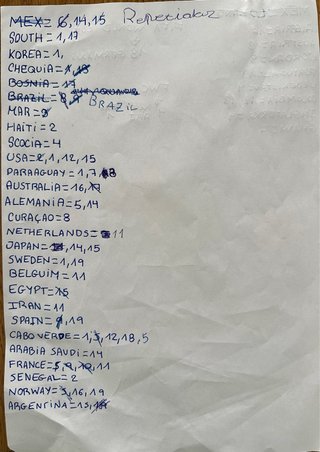 MEX= 6,14,15 Repetidaz
SOUTH = 1,17
KOREA = 1,
CHEQUIA = 1,18
BOSNIA = 17
BRAZIL = 8,9 BRAZIL
MAR = 9
HAITI = 2
SCOCIA = 4
USA = 2, 1, 12, 15
PARAAGUAY = 1,7
AUSTRALIA = 16,17
ALEMANIA = 5,14
CURAÇAO = 8
NETHERLANDS = 11
JAPAN = 14,15
SWEDEN = 1,19
BELGUIM = 11
EGYPT = 15
IRAN = 11
SPAIN = 9,19
CABO VERDE = 1,3,12,18,5
ARABIA SAUDI = 14
FRANCE = 5,9,10,11
SENEGAL = 2
NORWAY = 3,16,19
ARGENTINA = 15,18